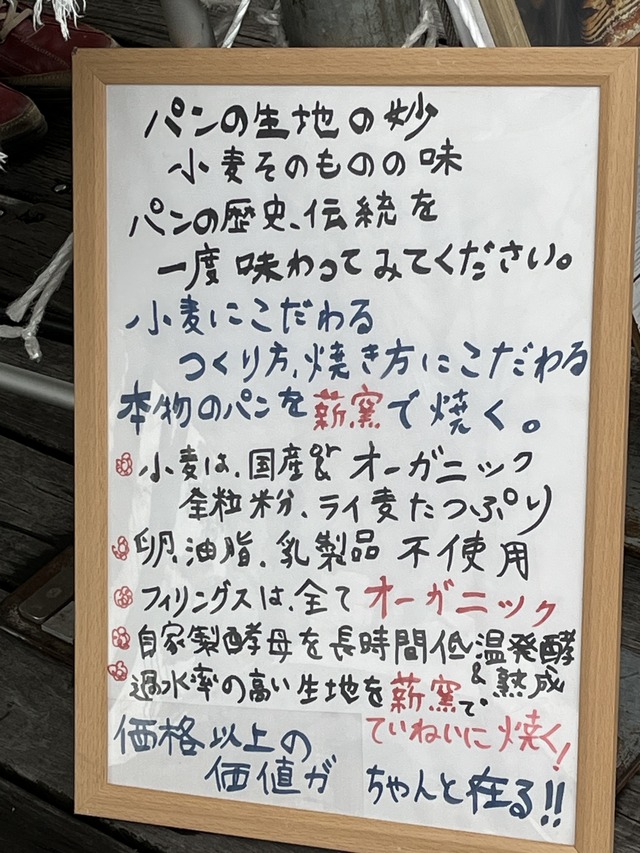 パンの生地の妙
小麦そのものの味
パンの歴史、伝統を
一度味わってみてください。
小麦にこだわる
つくり方、焼き方にこだわる
本物のパンを薪窯で焼く。
小麦は、国産&オーガニック
全粒粉、ライ麦たっぷり
卵、油脂、乳製品 不使用
フィリングスは、全てオーガニック
自家製酵母を長時間低温発酵
&熟成
過水率の高い生地を薪窯で、
ていねいに焼く!
価格以上の
価値が ちゃんと在る!!